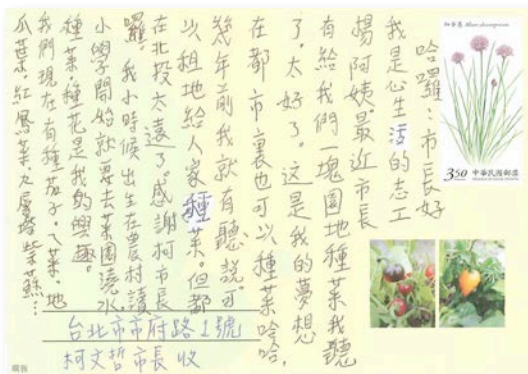 哈囉：市長好
我是心生活的志工
楊阿姨．最近市長
有給我們一塊園地種菜我聽
了．太好了．這是我的夢想
在都市裏也可以種菜哈哈，
幾年前我就有聽說．可
以租地給人家種菜．但都
在北投太遠了．感謝柯市長
囉．我小時候出生在農村讀
小學開始就要去菜園澆水
種菜．種花是我的興趣。
我們現在有種茄子．ㄟ菜．地
瓜葉．紅鳳菜．九層塔紫蘇…
台北市市府路1號
柯文哲市長 收
350 中華民國郵票